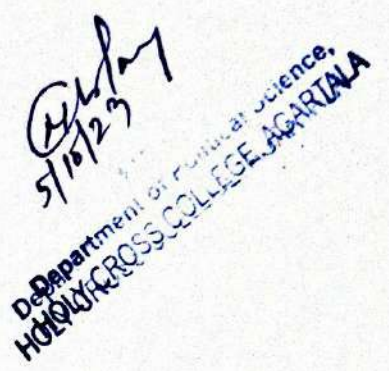 5/10/23
Department of Political Science,
HOLY CROSS COLLEGE, AGARTALA